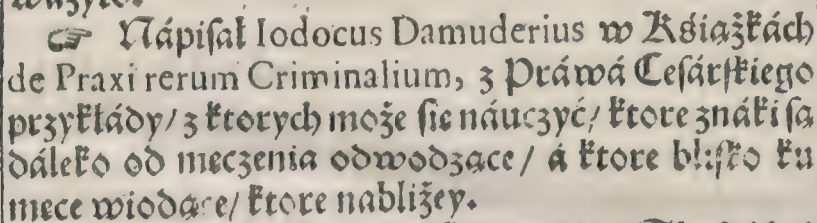 ☞ Nápiſał Iodocus Damuderius w Kśiąſzkách
de Praxi rerum Criminalium, z Práwá Ceſárſkiego
przykłády/ z ktorych może ſie náuczyć/ ktore znáki ſa
dáleko od męczenia odwodzące / á ktore bliſko ku
męce wiodące/ ktore nabliżey.